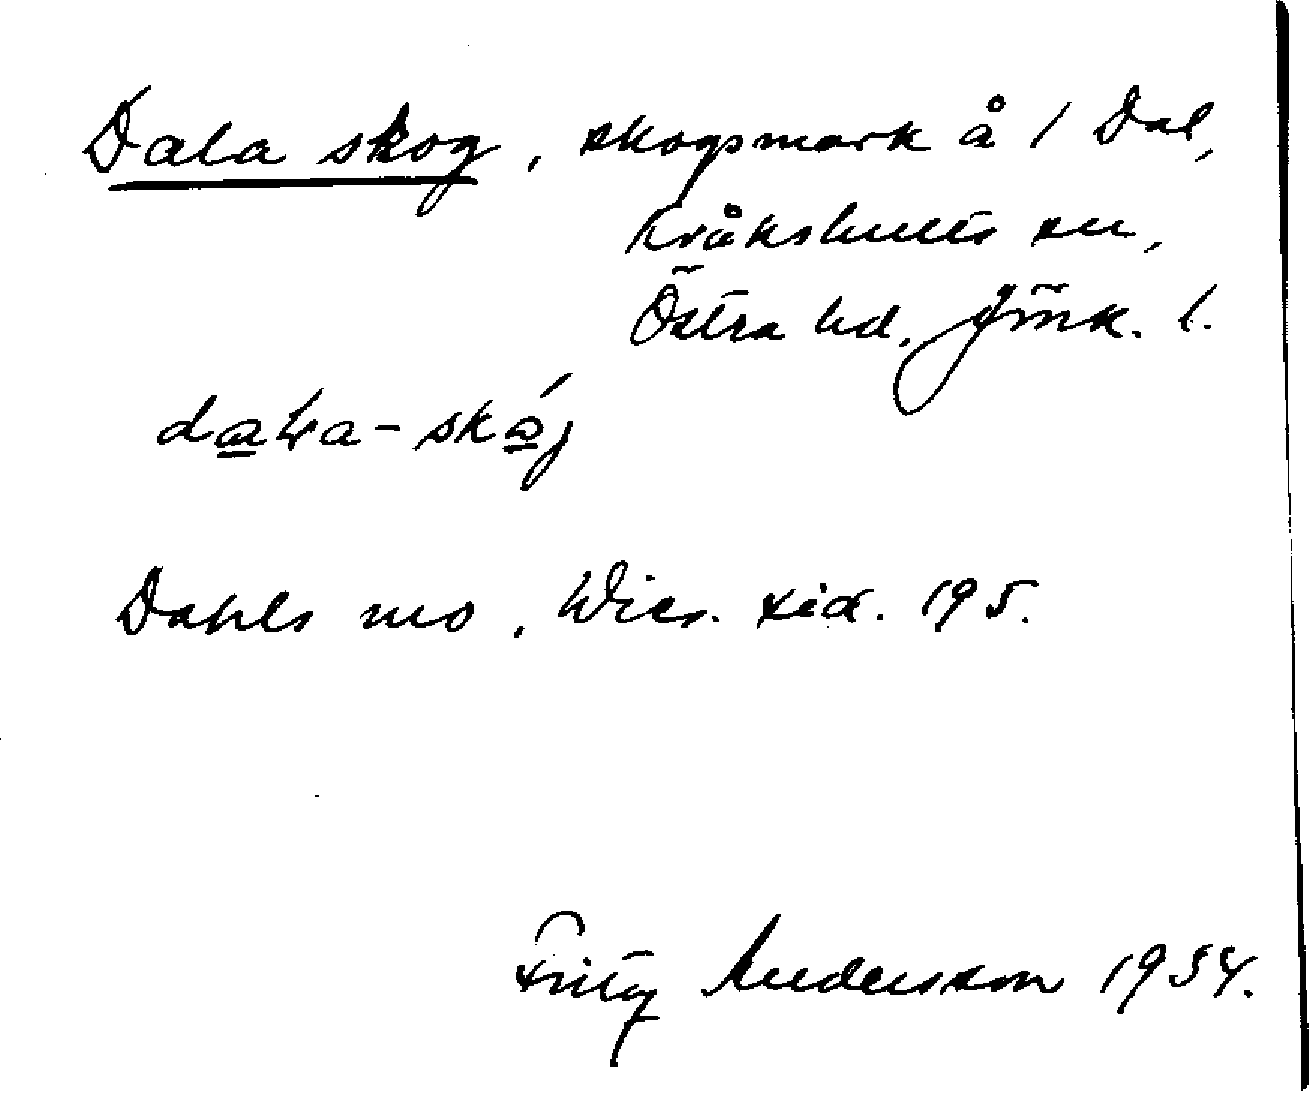 Dala skog, skogsmark å 1 Dal,
Kråkshults sn,
Östra hd, Jönk. l.
Dahls mo, Wies. sid. 195.
Fritz Andersson 1954.